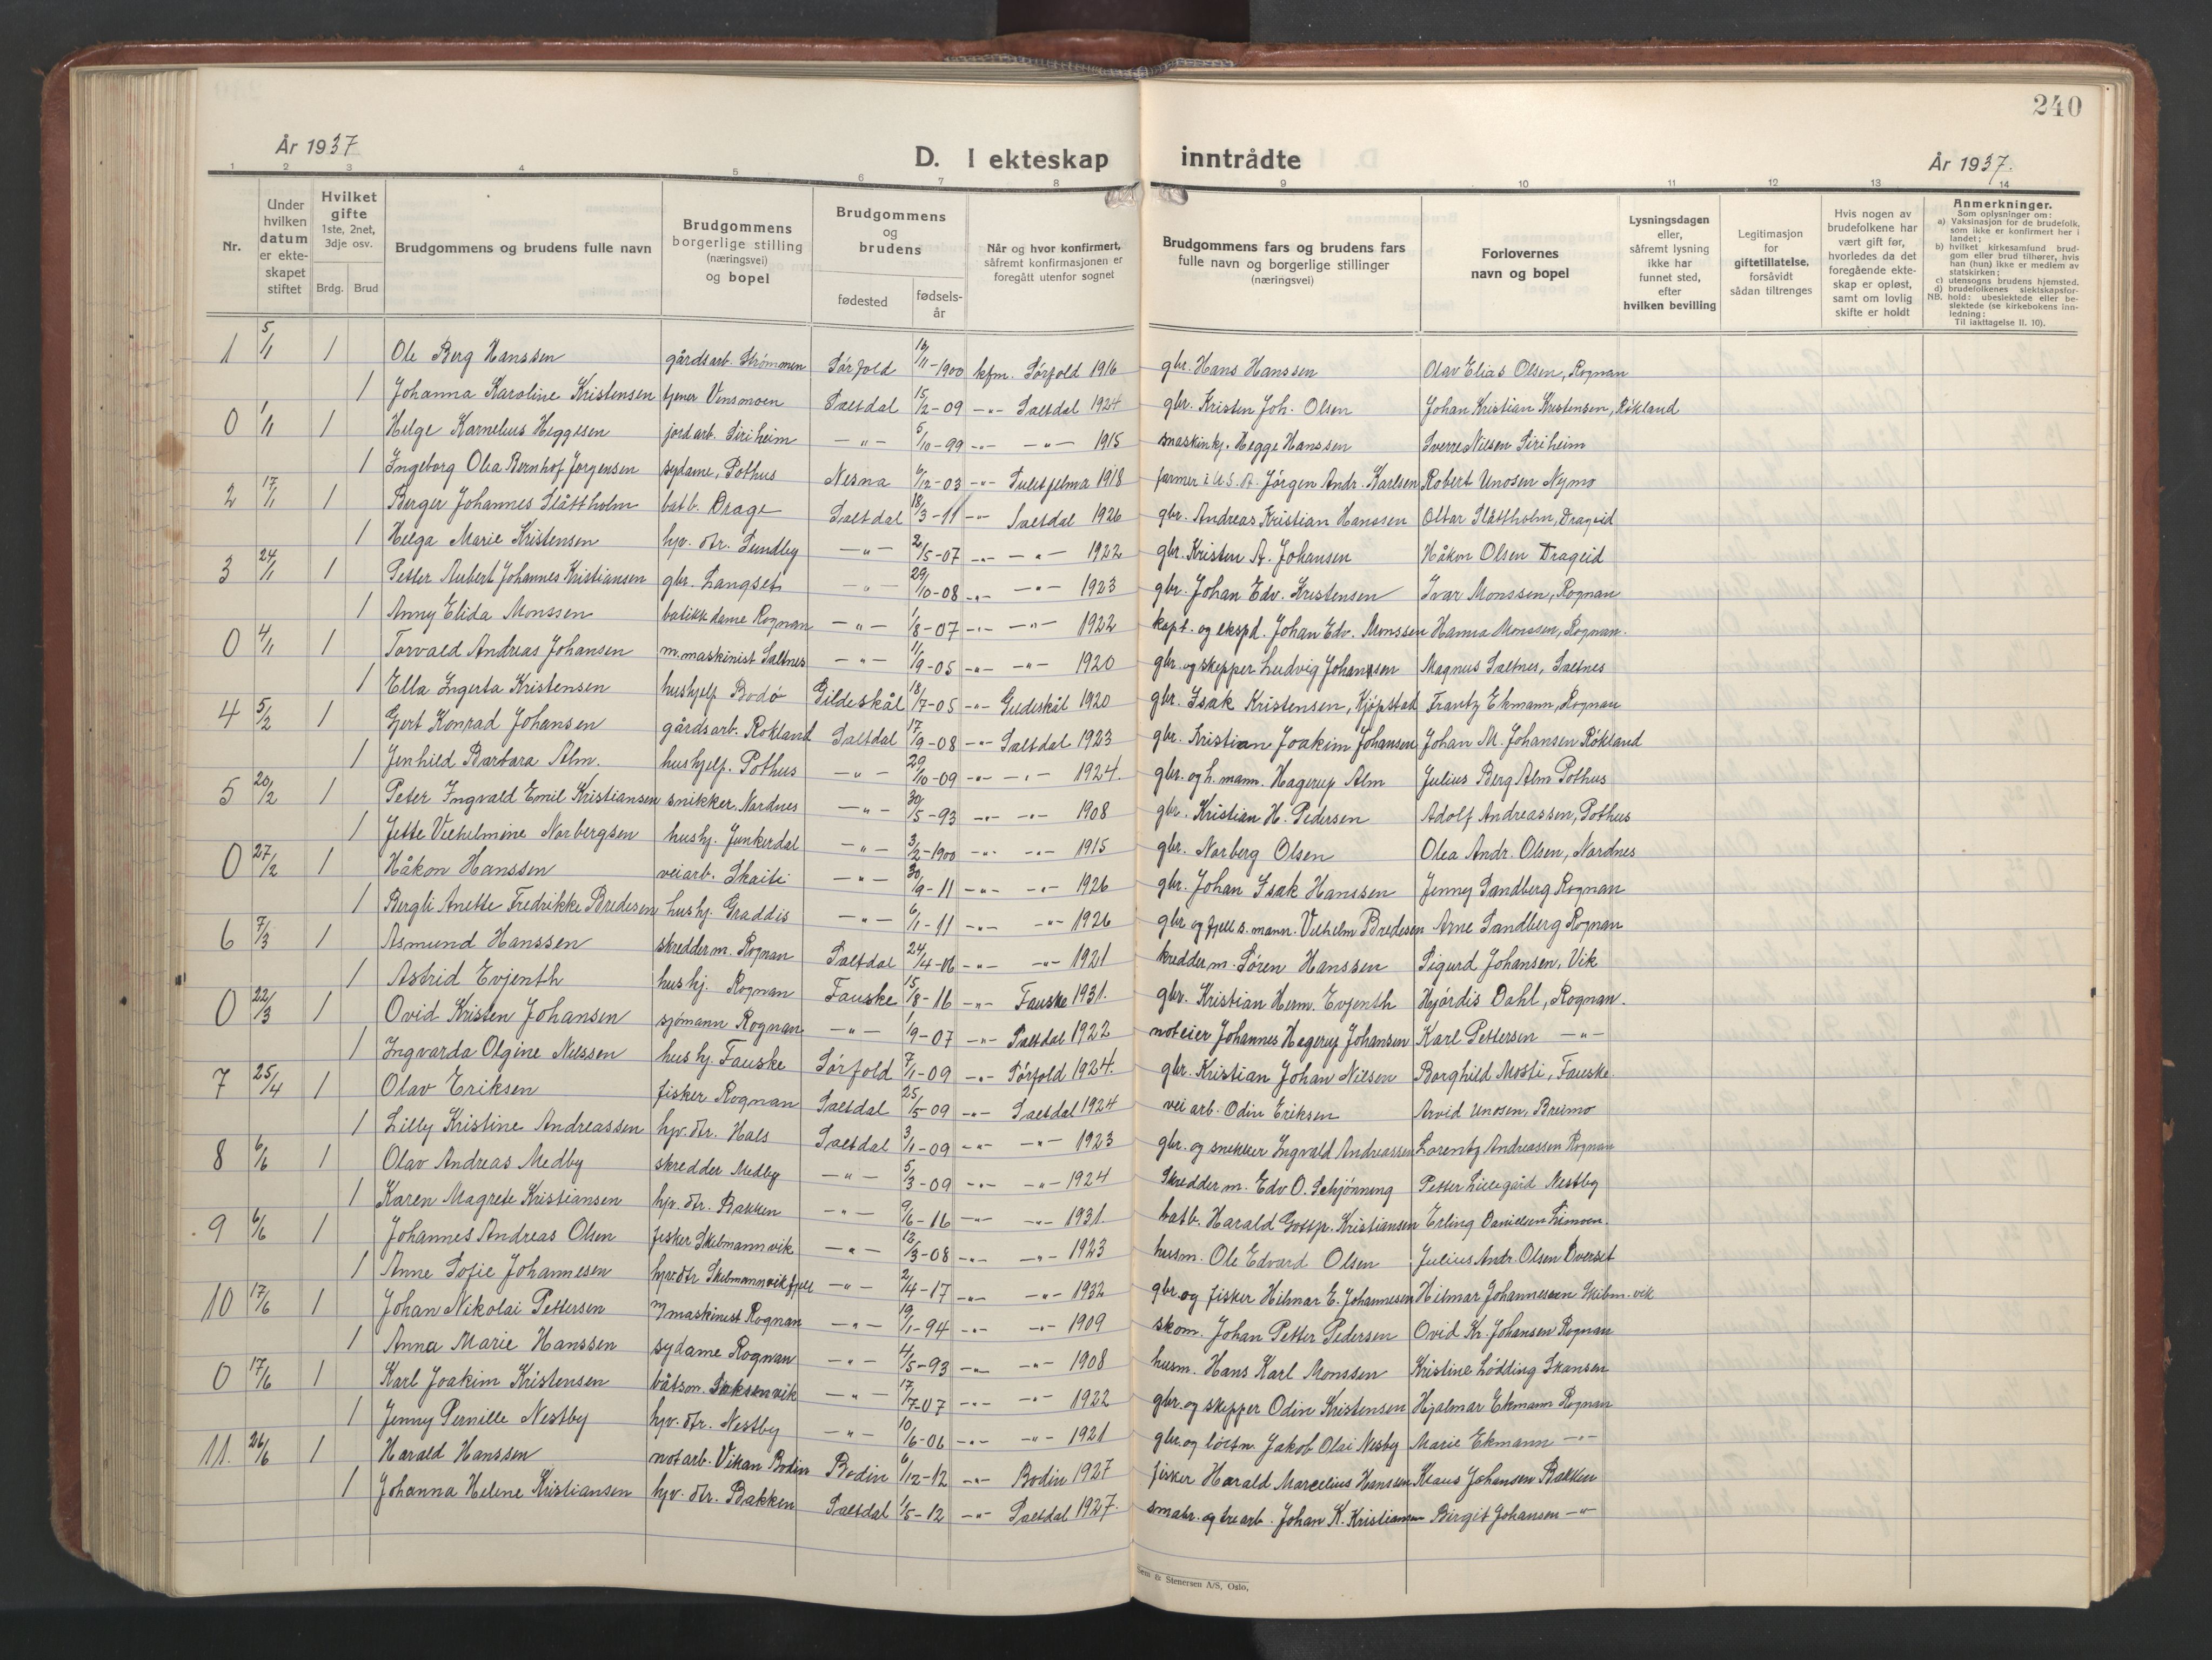 240
År 1937
D. I ekteskap inntrådte
År 1937.
1 2 3 4 5 6 7 8 9 10 11 12 13 14
Nr.
Under hvilken datum er ekteskapet stiftet
Hvilket gifte 1ste, 2net, 3dje osv.
Brdg. Brud
Brudgommens og brudens fulle navn
Brudgommens borgerlige stilling (næringsvei) og bopel
Brudgommens og brudens
fødested
fødsels-år
Når og hvor konfirmert, såfremt konfirmasjonen er foregått utenfor sognet
Brudgommens fars og brudens fars fulle navn og borgerlige stillinger (næringsvei)
Forlovernes navn og bopel
Lysningsdagen eller, såfremt lysning ikke har funnet sted, efter hvilken bevilling
Legitimasjon for giftetillatelse, forsåvidt sådan tiltrenges
Hvis nogen av brudefolkene har vært gift før, hvorledes da det foregående ekte-skap er opløst, samt om lovlig skifte er holdt
Anmerkninger.
Som oplysninger om:
a) Vaksinasjon for de brudefolk, som ikke er konfirmert her i landet;
b) hvilket kirkesamfund brud-gom eller brud tilhører, hvis han (hun) ikke er medlem av statskirken;
c) utensogns brudens hjemsted.
d) brudefolkenes slektskapsfor-hold: ubeslektede eller be-slektede (se kirkebokens inn-ledning:
NB. Til iakttagelse II. 10).
1 5/1 1 Ole Berg Hanssen gårdsarb. Strømmen Sørfold 12/11-1900 kfm. Sørfold 1916 gbr. Hans Hanssen Olav Elias Olsen, Rognan
1 Johanna Karoline Kristensen tjener Vensmoen Saltdal 15/2-09 -"- Saltdal 1924 gbr. Kristen Joh. Olsen Johan Kristian Kristensen, Røkland
0 1/1 1 Helge Kornelius Heggesen jordarb. Siriheim -"- 5/10-99 -"- -"- 1915 maskinkj. Hegge Hanssen Sverre Nilsen Siriheim
1 Ingeborg Olea Bernhof Jørgensen sydame, Pothus Nesna 6/12-03 -"- Sulitjelma 1918 farmer i U.S.A. Jørgen Andr. Karlsen Robert Unosen Nymo
2 17/1 1 Berger Johannes Slåttholm batb. Drage Saltdal 18/3-11 -"- Saltdal 1926 gbr. Andreas Kristian Hanssen Oltar Slåttholm, Drageid
1 Helga Marie Kristensen hjv. dtr. Sundby -"- 2/5-07 -"- -"- 1922 gbr. Kristen A. Johansen Håkon Olsen Drageid
3 24/1 1 Petter Aubert Johannes Kristiansen gbr. Langset -"- 29/10-08 -"- -"- 1923 gbr. Johan Edv. Kristensen Ivar Monssen, Rognan
1 Anny Elida Monssen butikkdame Rognan -"- 1/8-07 -"- -"- 1922 kapt. og ekspd. Johan Edv. Monssen Hanna Monssen, Rognan.
0 4/1 1 Torvald Andreas Johansen m.maskinist Saltnes -"- 11/9-05 -"- -"- 1920 gbr. og skipper Ludvig Johanssen Magnus Saltnes, Saltnes
1 Ella Ingerta Kristensen hushjelp Bodø Gildeskål 18/7-05 -"- Gildeskål 1920 gbr. Isak Kristensen, Kjøpstad Frantz Ekmann, Rognan
4 5/2 1 Gert Konrad Johansen gårdsarb. Rokland Saltdal 17/9-08 -"- Saltdal 1923 gbr. Kristian Joakim Johansen Johan M. Johansen Røkland
1 Jenhild Barbara Alm. hushjelp. Pothus -"- 29/10-09 -"- -"- 1924. gbr. og h. mann. Hagerup Alm Julius Berg Alm Pothus
5 20/2 1 Peter Ingvald Emil Kristiansen snikker Nordnes -"- 30/5-93 -"- -"- 1908 gbr. Kristian H. Pedersen Adolf Andreassen, Pothus
1 Jette Vilhelmine Norbergsen hushj. Junkerdal -"- 3/2-1900 -"- -"- 1915 gbr. Norberg Olsen Olea Andr. Olsen, Nordnes
0 27/2 1 Håkon Hanssen veiarb. Skaiti -"- 30/9-11 -"- -"- 1926 gbr. Johan Isak Hanssen Jenny Sandberg Rognan
1 Bergli Anette Fredrikke Bredesen hushj. Graddis -"- 6/1-11 -"- -"- 1926 gbr. og fjells.mann. Vilhelm Bredesen Arne Sandberg Rognan
6 7/3 1 Asmund Hanssen skredderm. Rognan Saltdal 24/4-06 -"- -"- 1921 kredderm. Søren Hanssen Sigurd Johansen, Vik
1 Astrid Evjenth hushj. Rognan Fauske 15/8-16 -"- Fauske 1931. gbr. Kristian Herm. Evjenth Hjördis Dahl, Rognan.
0 22/3 1 Ovid Kristen Johansen sjømann Rognan -"- 1/9-07 -"- Saltdal 1922 noteier Johannes Hagerup Johansen Karl Pettersen -"-
1 Ingvarda Olgine Nilssen hushj. Fauske Sørfold 7/1-09 -"- Sørfold 1924. gbr. Kristian Johan Nilsen Borghild Mosti, Fauske.
7 25/4 1 Olav Eriksen fisker Rognan Saltdal 25/5-09 -"- Saltdal 1924 veiarb. Odin Eriksen Arvid Unosen, Breimo
1 Lilly Kristine Andreassen hjv. dtr. Hals Saltdal 3/1-09 -"- -"- 1923 gbr. og snekker Ingvald Andreassen Lorentz Andreassen Rognan
8 6/6 1 Olav Andreas Medby skredder Medby -"- 5/3-09 -"- -"- 1924 Skredderm. Edv O. Schjönning Petter Lillegård Nestby
1 Karen Magrete Kristiansen hjv. dtr. Bakken -"- 9/6-16 -"- -"- 1931. batb. Harald Gottpr. Kristiansen Erling Danielsen Limoen.
9 6/6 1 Johannes Andreas Olsen fisker Skibmannvik -"- 12/3-08 -"- -"- 1923 husm. Ole Edvard Olsen Julius Andr. Olsen Everset
1 Anne Sofie Johannesen hjv. dtr Skibmannvikfjell -"- 2/4-17 -"- -"- 1932 gbr. og fisker Hilmar E. Johannesen Hilmar Johannessen Skibm.vik
10 17/6 1 Johan Nikolai Pettersen m/maskinist Rognan -"- 19/1-94 -"- -"- 1909 skom. Johan Petter Pedersen Ovid Kr. Johansen Rognan
1 Anna Marie Hanssen sydame Rognan -"- 4/5-93 -"- -"- 1908 husm. Hans Karl Monssen Kristine Lödding Skansen
0 17/6 1 Karl Joakim Kristensen båtsm. Saksenvik -"- 17/7-07 -"- -"- 1922 gbr. og skipper Odin Kristensen Hjalmar Ekmann Rognan
1 Jenny Pernille Nestby hjv. dtr. Nestby -"- 10/6-06 -"- -"- 1921 gbr. og löitn. Jakob Olai Nesby Marie Ekmann -"-
11. 26/6 1 Harald Hanssen notarb. Vikan Bodin Bodin 6/12-12 -"- Bodin 1927 fisker Harald Marcelius Hanssen Klaus Johansen Bakken
1 Johanna Helene Kristiansen hjv. dtr. Bakken Saltdal 1/5-12 -"- Saltdal 1927. småbr. og trearb. Johan K. Kristiansen Birgit Johansen -"-
Sem & Stenersen A/S, Oslo,